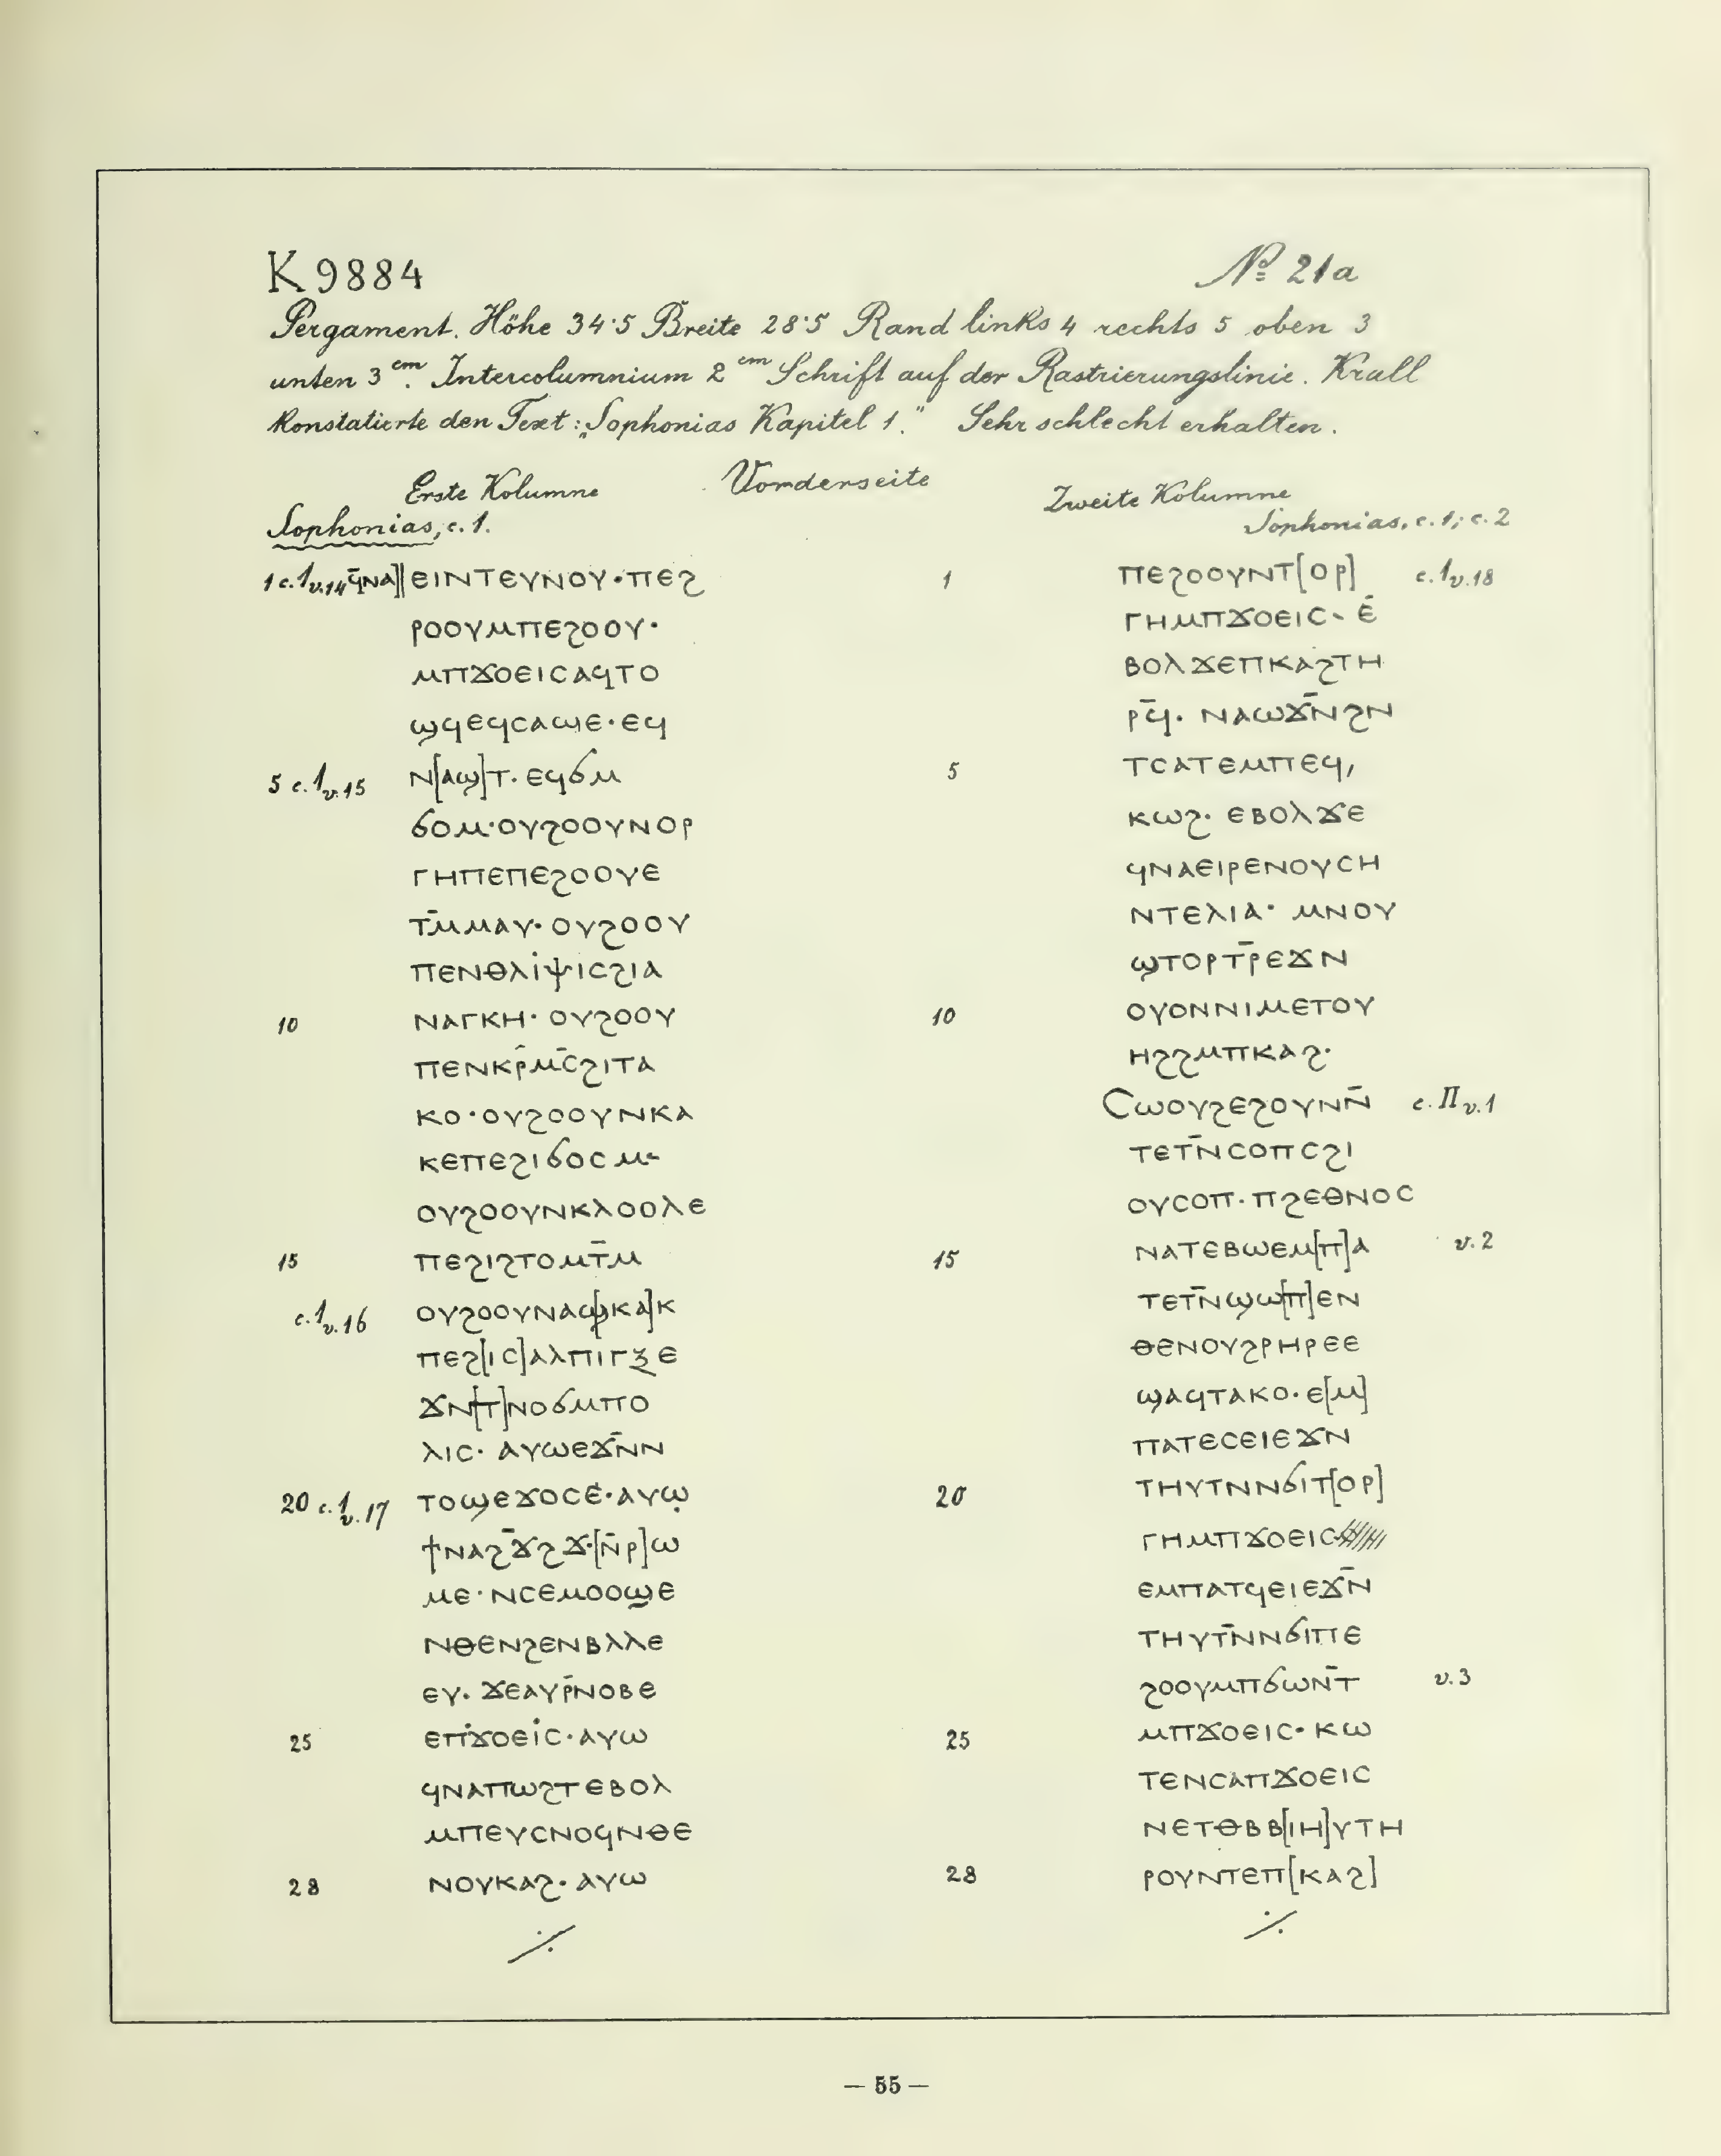 K 9884
№ 21a
Pergament. Höhe 34·5 Breite 28·5 Rand links 4 rechts 5 oben 3
unten 3 cm. Intercolumnium 2 cm Schrift auf der Rastrierungslinie. Krall
Konstatierte den Text: „Sophonias Kapitel 1." Sehr schlecht erhalten.
Vorderseite
Erste Kolumne
Sophonias, c. 1.
1 c. 1 v. 14 ϥ̄ⲛⲁ]ⲉⲓⲛⲧⲉⲩⲛⲟⲩ·ⲡⲉϩ
ⲣⲟⲟⲩⲙⲡⲉϩⲟⲟⲩ·
ⲙⲡϫⲟⲉⲓⲥⲁϥⲧⲟ
ϣϥⲉϥⲥⲁϣⲉ·ⲉϥ
5 c. 1 v. 15 ⲛ[ⲁϣ]ⲧ·ⲉϥϭⲙ
ϭⲟⲙ·ⲟⲩϩⲟⲟⲩⲛⲟⲣ
ⲅⲏⲡⲉⲡⲉϩⲟⲟⲩⲉ
ⲧⲙ̄ⲙⲁⲩ·ⲟⲩϩⲟⲟⲩ
ⲡⲉⲛⲑⲗⲓ̇ⲯⲓⲥϩⲓⲁ
10 ⲛⲁⲅⲕⲏ·ⲟⲩϩⲟⲟⲩ
ⲡⲉⲛⲕⲣ̄ⲙⲥ̄ϩⲓⲧⲁ
ⲕⲟ·ⲟⲩϩⲟⲟⲩⲛⲕⲁ
ⲕⲉⲡⲉϩⲓϭⲟⲥⲙ-
ⲟⲩϩⲟⲟⲩⲛⲕⲗⲟⲟⲗⲉ
15 ⲡⲉϩⲓϩⲧⲟⲙⲧ̄ⲙ
c. 1 v. 16 ⲟⲩϩⲟⲟⲩⲛⲁϣ[ⲕⲁ]ⲕ
ⲡⲉϩ[ⲓⲥ]ⲁⲗⲡⲓⲅⲝⲉ
ϫⲛ[ⲧ]ⲛⲟϭⲙⲡⲟ
ⲗⲓⲥ·ⲁⲩⲱⲉϫⲛ̄ⲛ
20 c. 1 v. 17 ⲧⲟϣⲉϫⲟⲥⲉ̇·ⲁⲩⲱ
ϯⲛⲁϩϫ̄ϩϫ·[ⲛ̄ⲣ]ⲱ
ⲙⲉ·ⲛⲥⲉⲙⲟⲟϣⲉ
ⲛⲑⲉⲛϩⲉⲛⲃⲗⲗⲉ
ⲉⲩ·ϫⲉⲁⲩⲣ̄ⲛⲟⲃⲉ
25 ⲉⲡϫ̇ⲟⲉⲓ̇ⲥ·ⲁⲩⲱ
ϥⲛⲁⲡⲱϩⲧⲉⲃⲟⲗ
ⲙⲡⲉⲩⲥⲛⲟϥⲛⲑⲉ
28 ⲛⲟⲩⲕⲁϩ·ⲁⲩⲱ
⁒
Zweite Kolumne
Sophonias, c. 1; c. 2
1 ⲡⲉϩⲟⲟⲩⲛⲧ[ⲟⲣ] c. 1 v. 18
ⲅⲏⲙⲡϫⲟⲉⲓⲥ· ⲉ̄
ⲃⲟⲗϫⲉⲡⲕⲁϩⲧⲏ
ⲣϥ̄· ⲛⲁⲱϫⲛ̄ϩⲛ
5 ⲧⲥⲁⲧⲉⲙⲡⲉϥ,
ⲕⲱϩ· ⲉⲃⲟⲗϫⲉ
ϥⲛⲁⲉⲓⲣⲉⲛⲟⲩⲥⲏ
ⲛⲧⲉⲗⲓⲁ· ⲙⲛⲟⲩ
ϣⲧⲟⲣⲧⲣ̄ⲉϫⲛ
10 ⲟⲩⲟⲛⲛⲓⲙⲉⲧⲟⲩ
ⲏϩϩⲙⲡⲕⲁϩ·
Ⲥⲱⲟⲩϩⲉϩⲟⲩⲛⲛ̄ c. II v. 1
ⲧⲉⲧⲛ̄ⲥⲟⲡⲥϩⲓ
ⲟⲩⲥⲟⲡ·ⲡϩⲉⲑⲛⲟⲥ
15 ⲛⲁⲧⲉⲃⲱⲉⲙ[ⲡ]ⲁ v. 2
ⲧⲉⲧⲛ̄ϣⲱ[ⲡ]ⲉⲛ
ⲑⲉⲛⲟⲩϩⲣⲏⲣⲉⲉ
ϣⲁϥⲧⲁⲕⲟ·ⲉ[ⲙ]
ⲡⲁⲧⲉⲥⲉⲓⲉϫⲛ
20 ⲧⲏⲩⲧⲛⲛϭⲓⲧ[ⲟⲣ]
ⲅⲏⲙⲡϫⲟⲉⲓⲥ
ⲉⲙⲡⲁⲧϥⲉⲓⲉϫⲛ̄
ⲧⲏⲩⲧⲛ̄ⲛϭⲓⲡⲉ
ϩⲟⲟⲩⲙⲡϭⲱⲛ̄ⲧ v. 3
25 ⲙⲡϫⲟⲉⲓⲥ·ⲕⲱ
ⲧⲉⲛⲥⲁⲡϫⲟⲉⲓⲥ
ⲛⲉⲧⲑⲃⲃ[ⲓⲏ]ⲩⲧⲏ
28 ⲣⲟⲩⲛⲧⲉⲡ[ⲕⲁϩ]
⁒
— 55 —